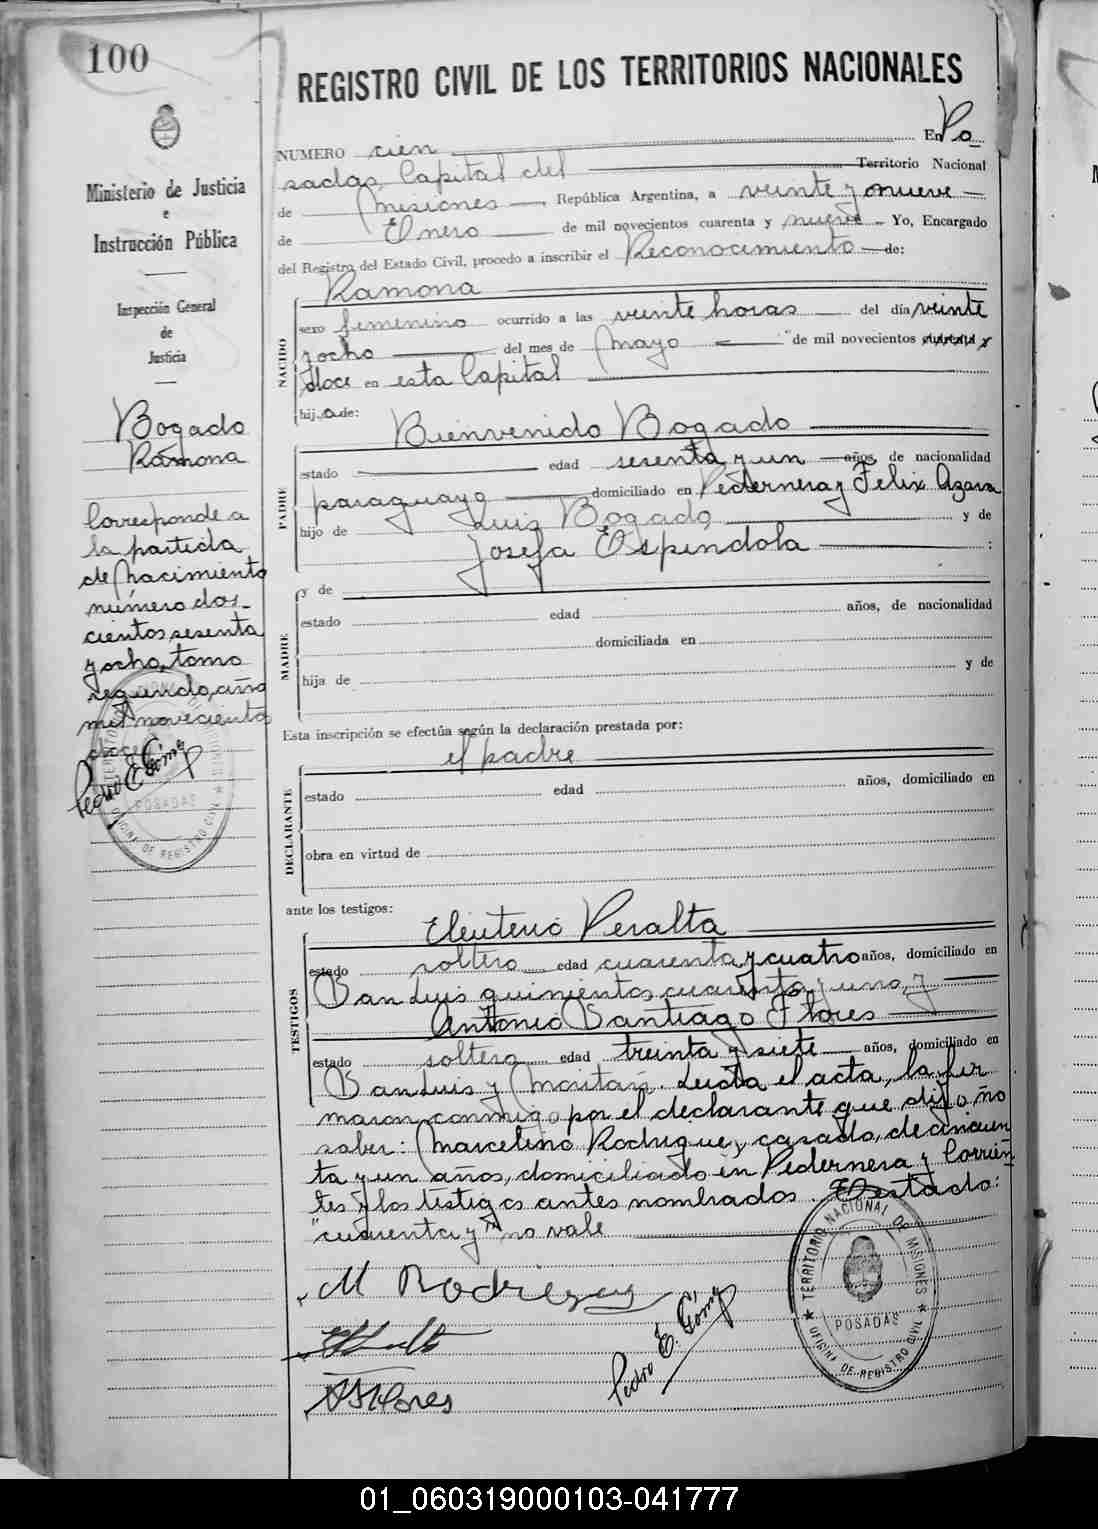 100
Ministerio de Justicia
e
Instrucción Pública
Inspección General
de
Justicia
Bogado
Ramona
Corresponde a
la partida
de Nacimiento
número dos-
cientos sesenta
y ocho, tomo
segundo, año
mil novecientos
doce
Pedro E. Gómez
REGISTRO CIVIL DE LOS TERRITORIOS NACIONALES
NUMERO cien En Po
sadas, Capital del Territorio Nacional
de Misiones República Argentina, a veinte y nueve
de Enero de mil novecientos cuarenta y nueve Yo, Encargado
del Registro del Estado Civil, procedo a inscribir el Reconocimiento de:
NACIDO
Ramona
sexo femenino ocurrido a las veinte horas del día veinte
y ocho del mes de Mayo de mil novecientos cuarenta y
doce en esta Capital
hija de:
PADRE
Bienvenido Bogado
estado edad sesenta y un años, de nacionalidad
paraguayo domiciliado en Pedernera y Felix Azara
hijo de Luis Bogado y de
Josefa Espíndola :
MADRE
y de
estado edad años, de nacionalidad
domiciliada en
hija de y de
Esta inscripción se efectúa según la declaración prestada por:
DECLARANTE
el padre
estado edad años, domiciliado en
obra en virtud de
ante los testigos:
TESTIGOS
Eleuterio Peralta
estado soltero edad cuarenta y cuatro años, domiciliado en
San Luis quinientos cuarenta y uno, y
Antonio Santiago Flores
estado soltero edad treinta y siete años, domiciliado en
San Luis y Moritán. Leída el acta, la fir
maron conmigo por el declarante que dijo no
saber: Marcelino Rodriguez, casado, de cincuen
ta y un años, domiciliado en Pedernera y Corrien-
tes y los testigos antes nombrados. Testado:
"cuarenta y" no vale
M Rodriguez
A S Flores
Pedro E. Gómez
TERRITORIO NACIONAL DE MISIONES
POSADAS
OFICINA DE REGISTRO CIVIL
01_060319000103-041777